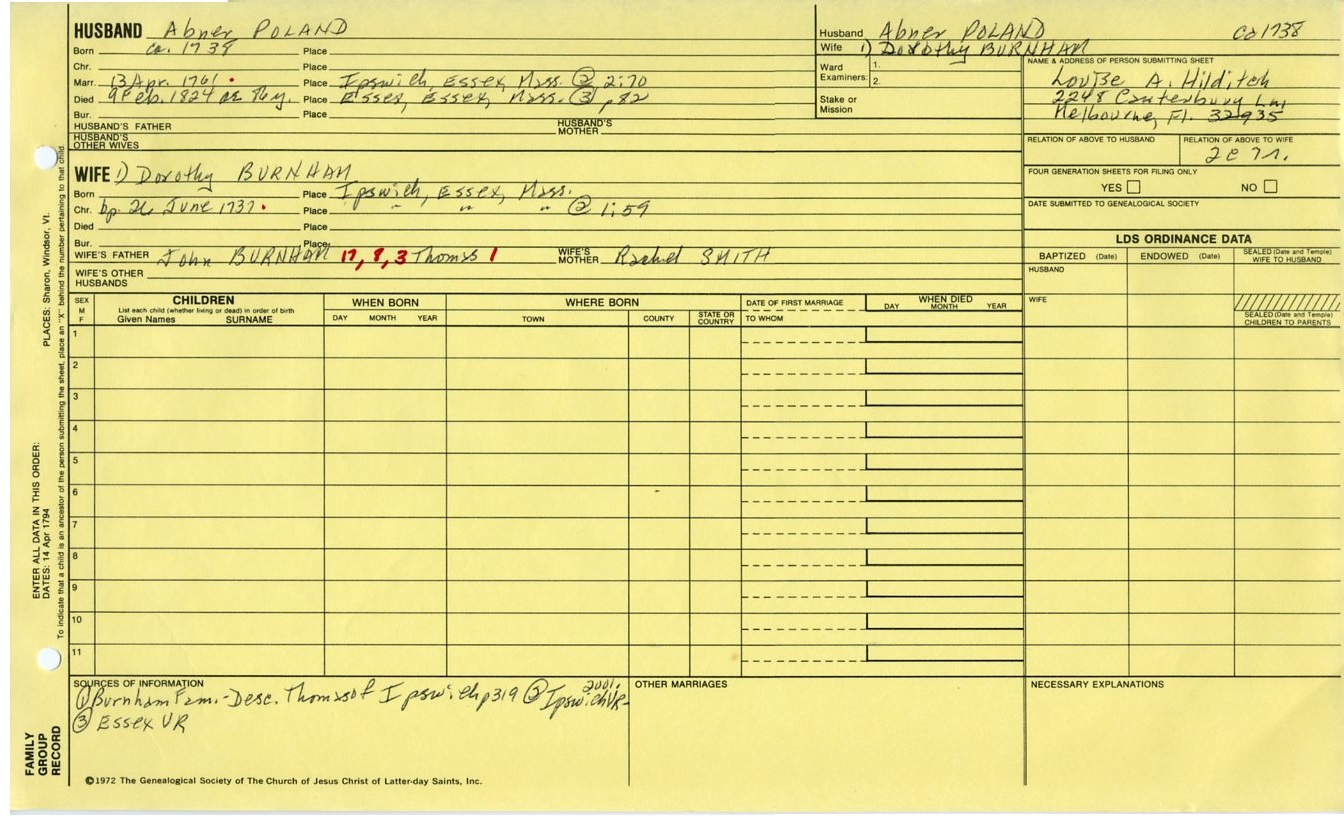 HUSBAND Abner POLAND
Born ca. 1738 Place
Chr. Place
Marr. 13 Apr. 1761 Place Ipswich, Essex, Mass. @ 2:70
Died 9 Feb. 1824 ae 86y. Place Essex, Essex, Mass. ③ p82
Bur. Place
HUSBAND'S FATHER HUSBAND'S MOTHER
HUSBAND'S OTHER WIVES
WIFE 1) Dorothy BURNHAM
Born Place Ipswich, Essex, Mass.
Chr. bp. 26 June 1737 Place " " " @ 1:59
Died Place
Bur. Place
WIFE'S FATHER John BURNHAM 17, 8, 3 Thomas 1 WIFE'S MOTHER Rachel SMITH
WIFE'S OTHER HUSBANDS
Husband Abner POLAND ca 1738
Wife 1) Dorothy BURNHAM
Ward 1.
Examiners: 2.
Stake or Mission
NAME & ADDRESS OF PERSON SUBMITTING SHEET
Louise A. Hilditch
2248 Canterbury Ln,
Melbourne, Fl. 32935
RELATION OF ABOVE TO HUSBAND RELATION OF ABOVE TO WIFE
FOUR GENERATION SHEETS FOR FILING ONLY
YES NO
DATE SUBMITTED TO GENEALOGICAL SOCIETY
LDS ORDINANCE DATA
BAPTIZED (Date) ENDOWED (Date) SEALED (Date and Temple) WIFE TO HUSBAND
HUSBAND
WIFE
SEALED (Date and Temple) CHILDREN TO PARENTS
SEX M F
CHILDREN
List each child (whether living or dead) in order of birth
Given Names SURNAME
WHEN BORN
DAY MONTH YEAR
WHERE BORN
TOWN COUNTY STATE OR COUNTRY
DATE OF FIRST MARRIAGE
TO WHOM
WHEN DIED
DAY MONTH YEAR
1
2
3
4
5
6
7
8
9
10
11
SOURCES OF INFORMATION
① Burnham Fam.-Desc. Thomas of Ipswich p319 ② Ipswich VR-
2001.
③ Essex VR
OTHER MARRIAGES
NECESSARY EXPLANATIONS
©1972 The Genealogical Society of The Church of Jesus Christ of Latter-day Saints, Inc.
FAMILY GROUP RECORD
ENTER ALL DATA IN THIS ORDER:
DATES: 14 Apr 1794 PLACES: Sharon, Windsor, Vt.
To indicate that a child is an ancestor of the person submitting the sheet, place an "X" behind the number pertaining to that child.